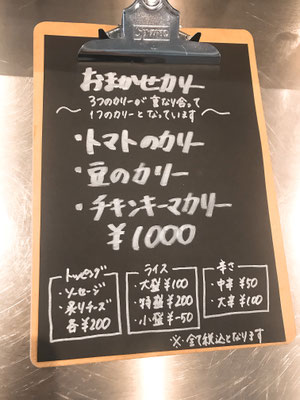 おまかせカリー
3つのカリーが重なり合って
〜1つのカリーとなっています〜
・トマトのカリー
・豆のカリー
・チキンキーマカリー
¥1000
トッピング
・ソーセージ
・炙りチーズ
各¥200
ライス
・大盛¥100
・特盛¥200
・小盛¥-50
辛さ
・中辛¥50
・大辛¥100
※全て税込となります